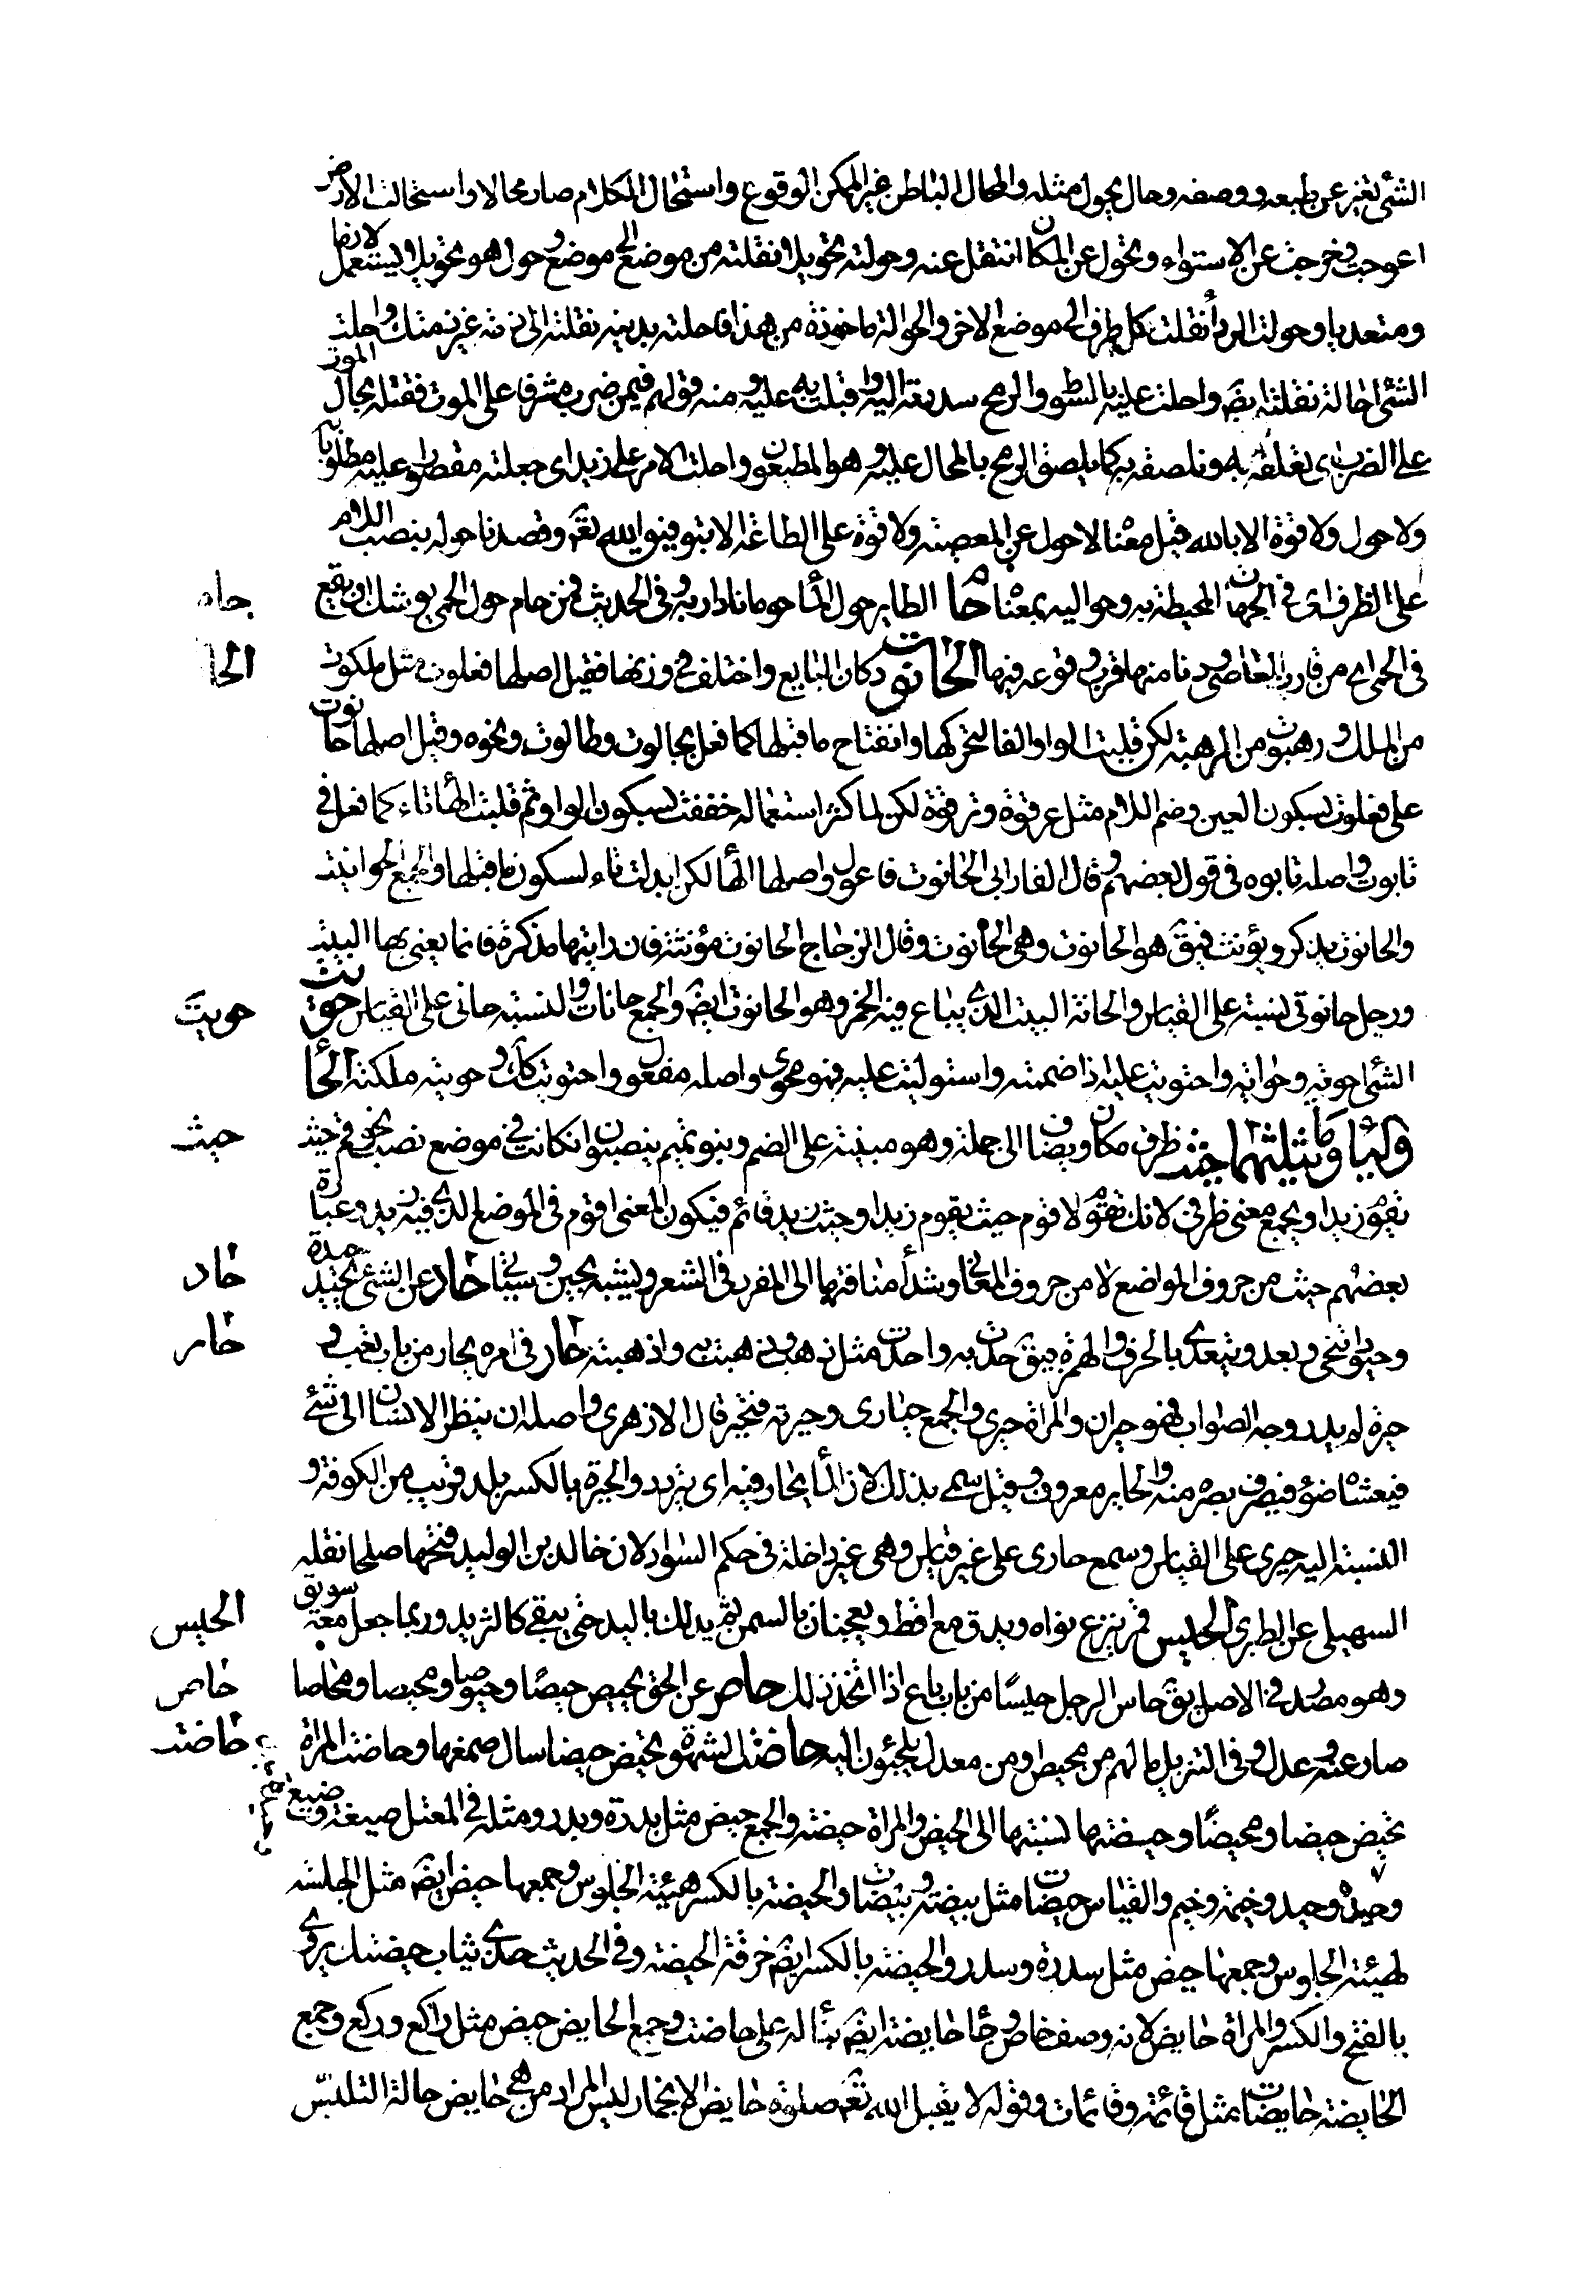 الشئ تغير عن طبعه ووصفه وحال يحول مثله والمحال الباطن غير الممكن الوقوع واستحال الكلام صار محالا واستحالت الارض
اعوجت وخرجت عن الاستواء وتحول عن المكان انتقل عنه وحولته تحويلا نقلته من موضع الى موضع وحول هو تحويلا يستعمل لازما
ومتعديا وحولت الرداء نقلت كل طرف الى موضع الاخر والحوالة ماخوذة من هذا فاحلته بدينه نقلته الى ذمة غير ذمتك واحلت
الشئ احالة نقلته ايضَ واحلت عليه بالسوط والرمح سددته اليه واقبلت به عليه ومنه قولهم فيمن ضرب مشرفا على الموت فقتله يحال الموت
على الضرب اى نعلقه به ونلصقه به كما يلصق الرمح بالمحال عليه وهو المطعون واحلت الامر على زيد اى جعلته مقصورا عليه مطلوبا به
ولا حول ولا قوة الا بالله قيل معناه لا حول عن المعصية ولا قوة على الطاعة الا بتوفيق الله تعَ وقعدنا حوله بنصب اللام
على الظرف اى فى الجهات المحيطة به وحواليه بمعناه حام الطاير حول الماء حوما نا دار به وفى الحديث فمن حام حول الحمى يوشك ان يقع
فى الحمى اى من قارب المعاصى ودنا منها قرب وقوعه فيها الحانوت دكان البايع واختلف فى وزنها فقيل اصلها فعلوت مثل ملكوت
من الملك ورهبوت من الرهبة لكن قلبت الواو الفا لتحركها وانفتاح ما قبلها كما فعل بجالوت وطالوت ونحوه وقيل اصلها حانوت
على فعلوة بسكون العين وضم اللام مثل عرقوة وترقوة لكن لما كثر استعماله خففت بسكون الواو ثم قلبت الهاء تاء كما فعل فى
تابوت واصله تابوه فى قول بعضهم وقال الفارابى الحانوت فاعول واصلها الهاء لكن ابدلت تاء لسكون ما قبلها والجمع الحوانيت
والحانوت يذكر ويؤنث فيقَ هو الحانوت وهى الحانوت وقال الزجاج الحانوت مؤنثة فان رايتها مذكرة فانما يعنى بها البيت
ورجل حانوتى نسبة على القياس والحانة البيت الذى يباع فيه الخمر وهو الحانوت ايضَ والجمع حانات والنسبة حانى على القياس حويت
الشئ احويه وحواية واحتويت عليه اذا ضممته واستوليت عليه فهو محوى واصله مفعول واحتويت كذلك وحويته ملكته الحا
وليا وما يثلثهما حيث ظرف مكان ويضاف الى جملة وهو مبنية على الضم وبنو تميم ينصبون اذا كانت فى موضع نصب نحو قم حيث
يقوم زيد او يجمع معنى ظرفين لانك تقول اقوم حيث يقوم زيد او حيث زيد قائم فيكون المعنى اقوم فى الموضع الذى فيه زيد وعبارة
بعضهم حيث من حروف المواضع لا من حروف المعانى وشذ اضافتها الى المفرد فى الشعر ويشبه بحين وسياتى حاد عن الشئ يحيد حيدة
وحيودا تنحى وبعد ويتعدى بالحرف والهمزة فيقَ حدت به واحدته مثل ذهب وذهبت به واذهبته حار فى امره يحار من باب تعب و
حيرة لم يدر وجه الصواب فهو حيران والمراة حيرى والجمع حيارى وحيرته فتحير قال الازهرى واصله ان ينظر الانسان الى شئ
فيغشاه ضوؤه فيصرف بصره منه والحاير معروف وقيل سمى بذلك لان الماء يحار فيه اى يتردد والحيرة بالكسر بلد قريب من الكوفة و
النسبة اليه حيرى على القياس وسمع حارى على غير قياس وهى غير داخلة فى حكم السواد لان خالد بن الوليد فتحها صلحا نقله
السهيلى عن الطبرى الحيس تمر ينزع نواه ويدق مع اقط ويعجنان بالسمن ثم يدلك باليد حتى يبقى كالثريد وربما جعل معه سويق
وهو مصدر فى الاصل يقَ حاس الرجل حيسًا من باب باع اذا اتخذ ذلك حاص عن الحق يحيص حيصًا وحيوصا ومحيصا ومحاصا
حاد عنه وعدل وفى التنزيل ما لهم من محيص اى من معدل يلجئون اليه حاضت السمرة تحيض حيضا سال صمغها وحاضت المراة
تحيض حيضا ومحيضًا وحيضتها نسبتها الى الحيض والمراة حيضة والجمع حيض مثل بدرة وبدر ومثله فى المعتل ضيعة وضيع
وحيدة وحيد وخيمة وخيم والقياس حيضات مثل بيضة وبيضات والحيضة بالكسر هيئة الجلوس وجمعها حيض ايضَ مثل الجلسة
لهيئة الجلوس وجمعها حيض مثل سدرة وسدر والحيضة بالكسر ايضَ خرقة الحيضة وفى الحديث خذى ثياب حيضتك يروى
بالفتح والكسر والمراة حايض لانه وصف خاص وجاء حايضة ايضَ بناء له على حاضت وجمع الحايض حيض مثل راكع وركع وجمع
الحايضة حايضات مثل قائمة وقائمات وقوله لا يقبل الله تعَ صلوة حايض الا بخمار ليس المراد من هى حايض حالة التلبس
حام
الحا
حويت
حيث
حاد
حار
الحيس
حاص
حاضت